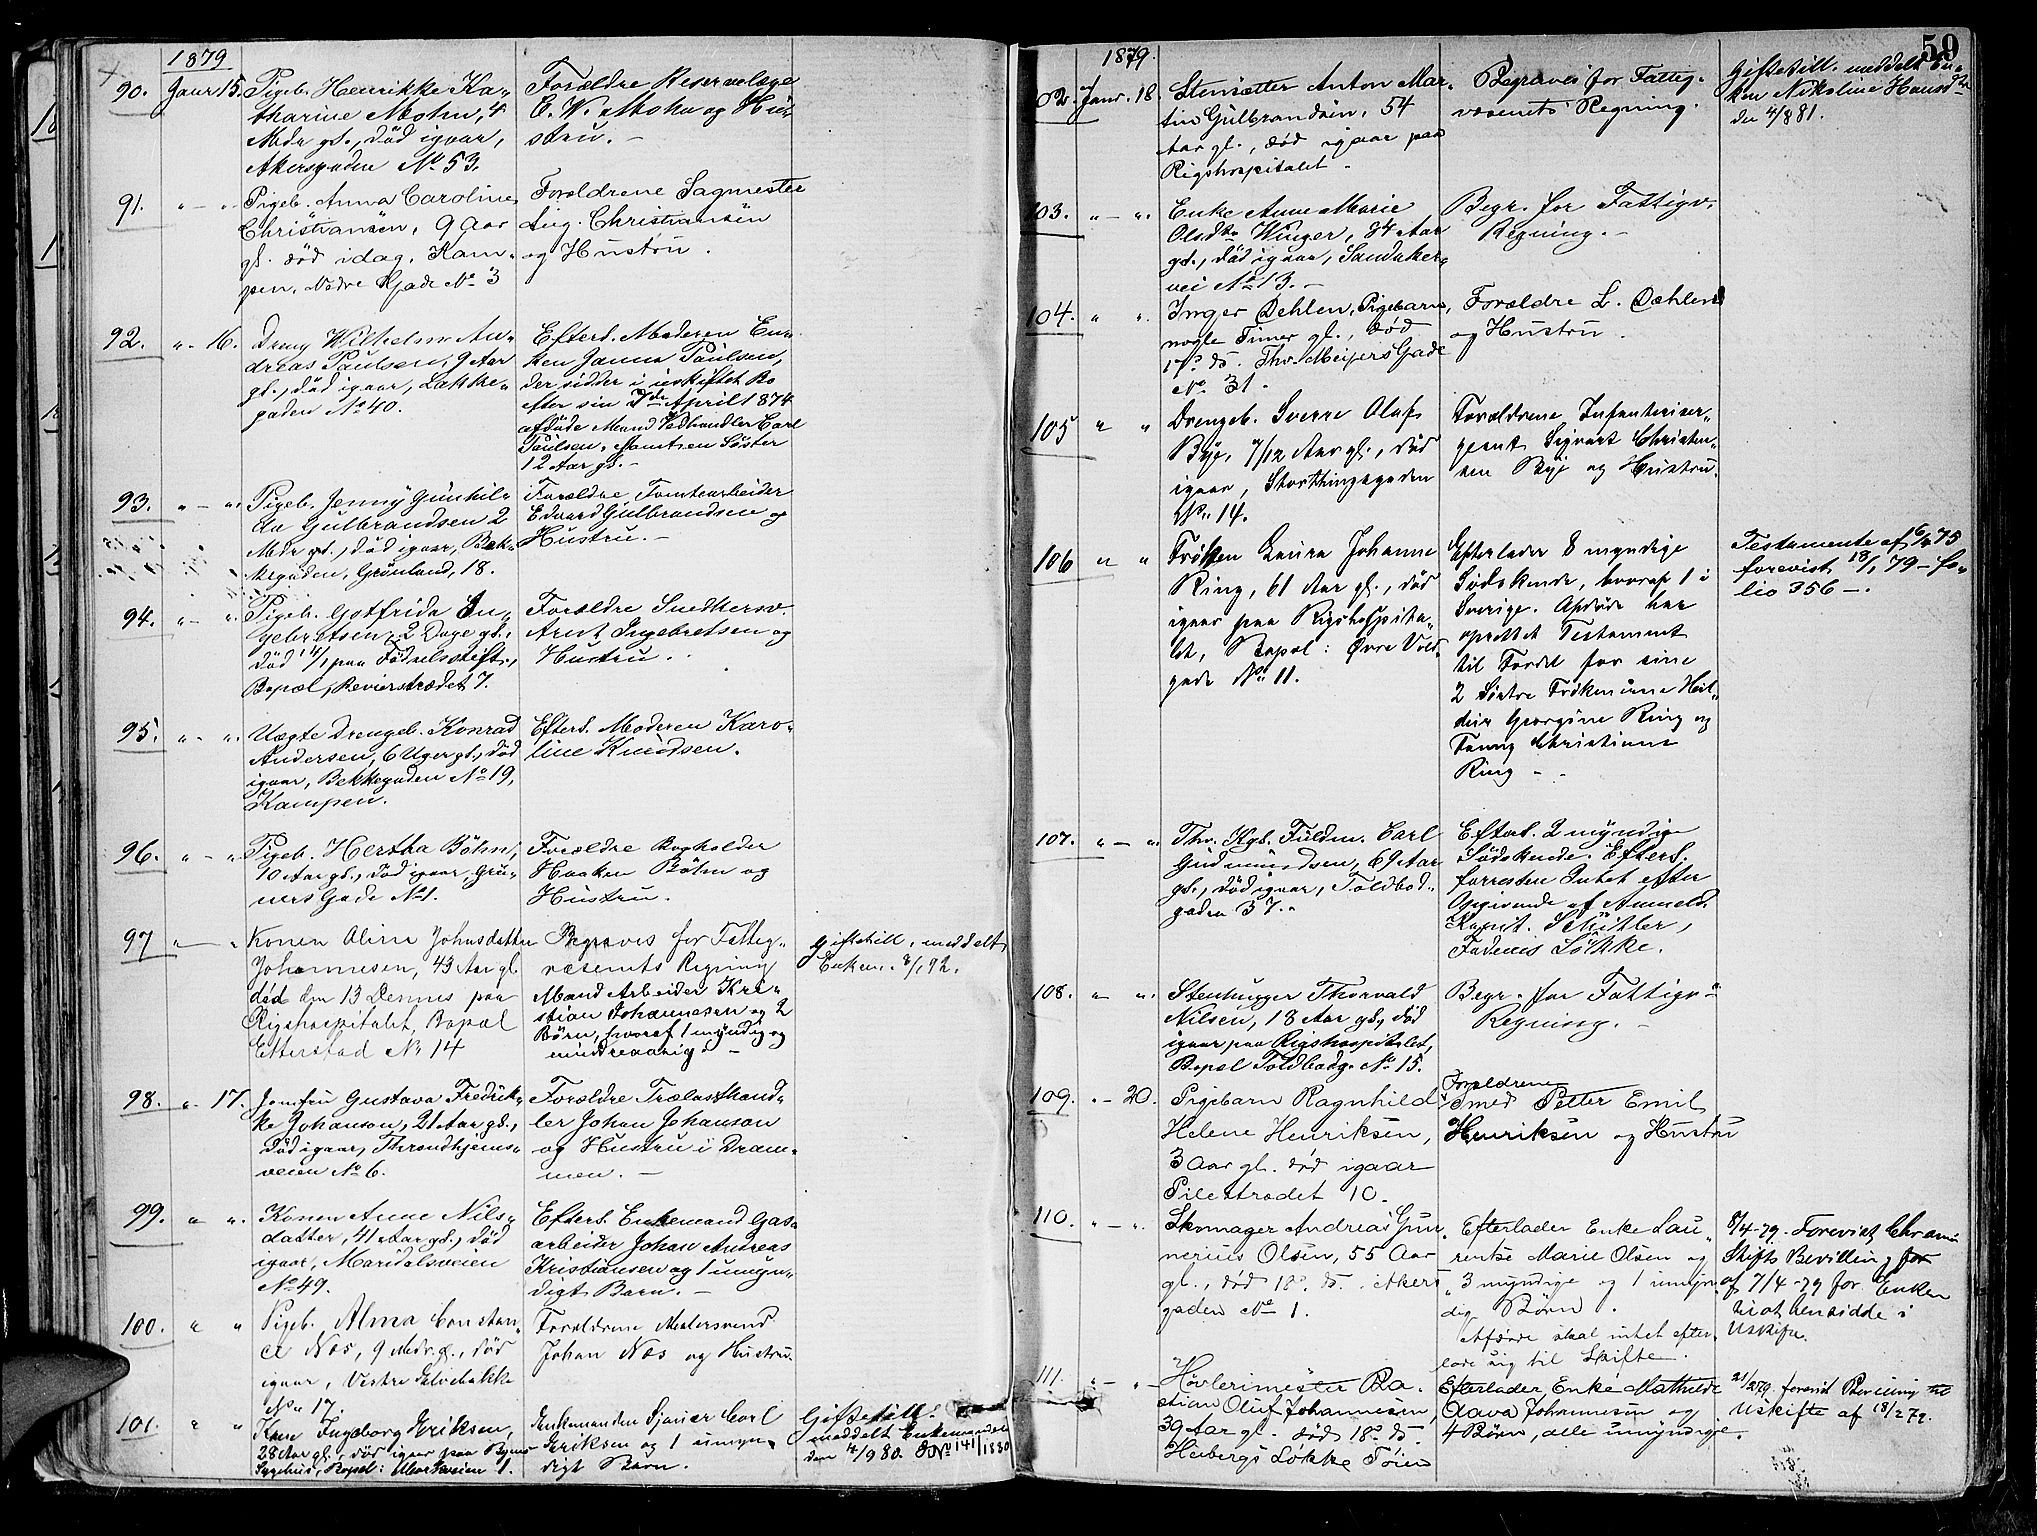 1879
90. Janr 15. Pigeb. Henrikke Ka-
tharine Mohn, 4
Mdr gl., død igaar,
Akersgaden No 53.
Forældre Reservelæge
E. W. Mohn og Hu-
stru. -
91. " - " Pigeb. Anna Caroline
Christiansen, 9 Aar
gl. død idag. Kam-
pen, Nedre Gade No 3
Forældrene Sagmester
Aug. Christiansen
og Hustru.
92. " - 16. Dreng Wilhelm An-
dreas Paulsen, 9 Aar
gl., død igaar, Lakke-
gaden No 40.
Efterl. Moderen En-
ken Janna Paulsen,
der sidder i uskiftet Bo
efter sin 7de April 1874
afdøde Mand Vedhandler Carl
Paulsen, samt en Søster
12 Aar gl. -
93. " - " Pigeb. Jenny Gunhil-
da Gulbrandsen 2
Mdr gl., død igaar, Bek-
kegaden, Grønland, 18.
Forældre, Tomtearbeider
Edvard Gulbrandsen og
Hustru. -
94. " - " Pigeb. Gotfrida En-
gebretsen, 2 Dage gl.,
død 14/1 paa Fødselsstift.,
Bopæl, Revierstrædet 7.
Forældre Snedkersv.
Arent Ingebretsen og
Hustru.
95. " - " Uægte Drengeb. Konrad
Andersen, 6 Uger gl., død
igaar, Bekkegaden No 19,
Kampen.
Efterl. Moderen Karo-
line Knudsen.
96. " - " Pigeb. Hertha Böhn,
10 Aar gl., død igaar, Grü-
ners Gade No 1.
Forældre Bogholder
Haaken Böhn og
Hustru.
97 " - " Konen Oline Johnsdatter
Johannesen, 43 Aar gl.
død den 13 Dennes paa
Rigshospitalet, Bopæl
Etterstad No 14
Begraves for Fattig-
væsenets Regning
Mand Arbeider Kri-
stian Johannesen og 2
Børn, hvoraf 1 myndig og
mindreaarig. -
Giftetill. meddelt
Enkem. 8/1 92.
98. " - 17. Jomfru Gustava Fredrik-
ke Johanson, 21 Aar gl.,
død igaar, Throndhjems-
veien No 6.
Forældre Trælasthand-
ler Johan Johanson
og Hustru i Dram-
men. -
99. " " Konen Anne Nils-
datter, 41 Aar gl., død
igaar, Maridalsveien
No 49.
Efterl. Enkemand Gas-
arbeider Johan Andreas
Kristiansen og 1 umyn-
digt Barn. -
100. " " Pigeb. Alma Constan-
ce Næs, 9 Mdr. gl., død
igaar, Vestre Elvebakke
No 17.
Forældrene Malersvend
Johan Næs og Hustru.
101. " " Kone Ingeborg Eriksen,
28 Aar gl., død igaar paa Byens
Sygehus, Bopæl: Markveien 1.
Enkemanden Sjauer Carl
Eriksen og 1 umyn-
digt Barn.
Giftetill.
meddelt Enkemanden
den 4/9 80. No 141/1880
59
1879.
102. Janr. 18. Stensætter Anton Mar-
tin Gulbrandsen, 54
Aar gl., død igaar paa
Rigshospitalet -
Begraves for Fattig-
væsenets Regning.
Giftetill. meddelt En-
ken Nikoline Hansdtr
den 4/8 81.
103. " - " Enke Anne Marie
Olsdtr Winger, 84 Aar
gl., død igaar, Sandaker-
vei No 13. -
Begr. for Fattigv.
Regning. -
104. " " Inger Dehlen, Pigebarn,
nogle Timer gl., død
17. ds. Thv. Meyers Gade
No 31.
Forældre L. Dæhlen
og Hustru.
105 " " Drengeb. Sverre Olaf
Bye, 7/12 Aar gl., død
igaar, Storthingsgaden
No 14.
Forældrene Infanteriser-
geant Sigvart Christen-
sen Bye og Hustru.
106 " " Frøken Laura Johanne
Ring, 61 Aar gl., død
igaar paa Rigshospita-
let, Bopæl: Øvre Vold-
gade No 11.
Efterlader 8 myndige
Sødskende, hvoraf 1 i
Sverige. Afdøde har
oprettet Testament
til Fordel for sine
2 Søstre Frøknerne Hel-
Georgine Ring og
Fanny Christiane
Ring -
Testamente af
forevist 18/1 79 - fo-
lio 356 -.
107. " - " Thv. Kgl. Fuldm. Carl
Gudmundsen, 69 Aar
gl., død igaar, Toldbod-
gaden 37. -
Efterl. 2 myndige
Sødskende. Efterl.
forresten Intet efter
Opgivende af Anmeld.
Kapit. Schütler,
Løkke.
108. " " Stenhugger Thorvald
Nilsen, 18 Aar gl., død
igaar paa Rigshospitalet,
Bopæl Toldbodg. No 15.
Begr. for Fattigv.
Regning. -
109. " - 20. Pigebarn Ragnhild
Helene Henriksen,
3 Aar gl. død igaar
Pilestrædet 10.
Forældrene
Smed Petter Emil
Henriksen og Hustru
110. " - " Skomager Andreas Gun-
nerius Olsen, 55 Aar
gl., død 18. ds. Akers
gaden No 1.
Efterlader Enke Lau-
rentse Marie Olsen og
3 myndige og 1 umyn-
dig Børn.
Afdøde skal intet efter-
lade sig til Skifte.
8/4-79. Forevist Chrania
Stifts Bevilling for
af 7/4-79 for Enken
til at hensidde i
Uskifte.
111. " - " Høvlerimester Ba-
stian Oluf Johannesen,
39 Aar gl. død 18. ds.
Heibergs Løkke Tøien
Efterlader Enke Mathilde
Aava Johannesen og
4 Børn, alle umyndige.
21/2 79. forevist Bevilling til
Uskifte af 18/2 79.